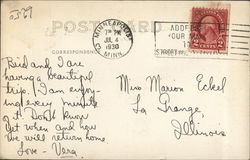 POST
CORRESPONDENCE
MINNEAPOLIS
7 PM
JUL 4
1930
MINN.
ADDRESS
YOUR
STREET
Bird and I are
having a beautiful
trip. I am enjoy-
ing every minute
of it. Don't know
yet when and how
we will return home
Love - Vera.
Miss Marion Eckel
La Grange
Illinois